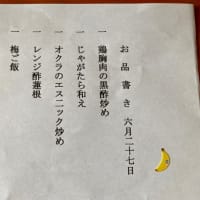 お品書き 六月二十七日
一 鶏胸肉の黒酢炒め
一 じゃがたら和え
一 オクラのエスニック炒め
一 レンジ酢蓮根
一 梅ご飯